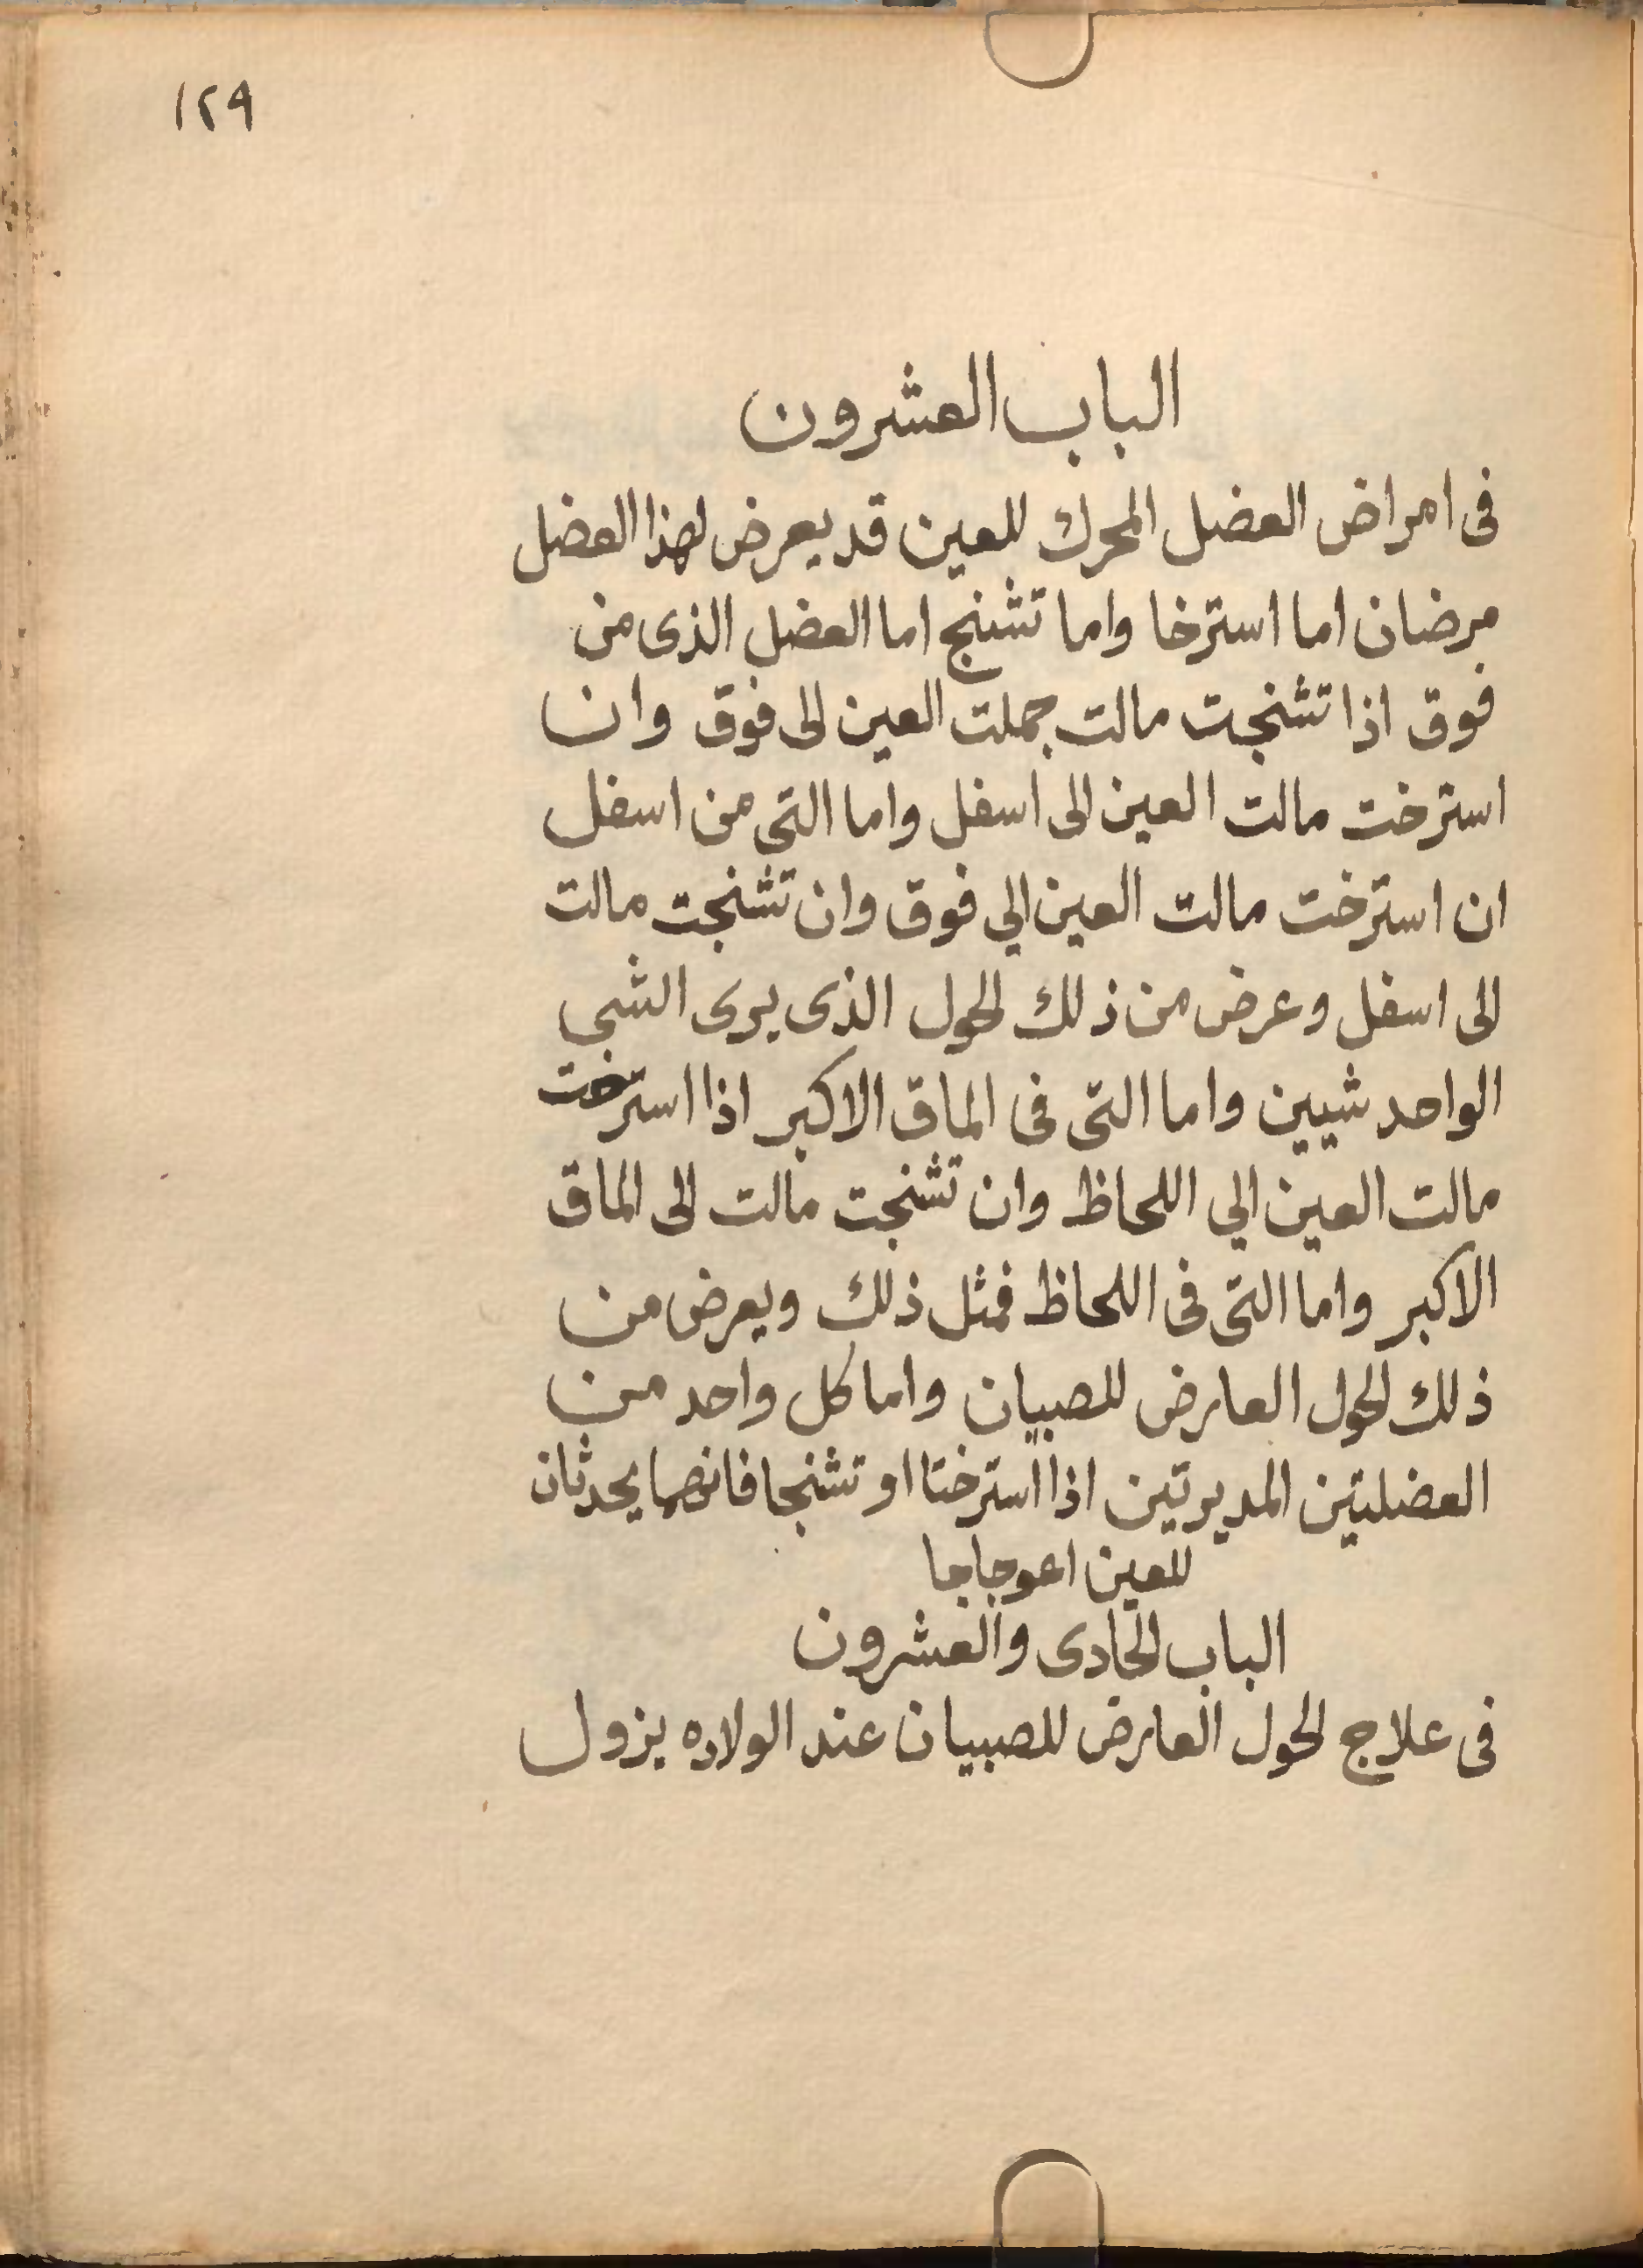 ١٢٩
الباب العشرون
فى امراض العضل المحرك للعين قد يعرض لهذا العضل
مرضان اما استرخا واما تشنج اما العضل الذى من
فوق اذا تشنجت مالت جملت العين الى فوق وان
استرخت مالت العين الى اسفل واما التى من اسفل
ان استرخت مالت العين الي فوق وان تشنجت مالت
الى اسفل وعرض من ذلك الحول الذى يرى الشى
الواحد شيين واما التى فى الماق الاكبر اذا استرخت
مالت العين الي اللحاظ وان تشنجت مالت الى الماق
الاكبر واما التى فى اللحاظ فمثل ذلك ويعرض من
ذلك الحول العارض للصبيان واما كل واحد من
العضلتين المديرتين اذا استرختا او تشنجا فانهما يحدثان
للعين اعوجاجا
الباب الحادى والعشرون
فى علاج الحول العارض للصبيان عند الولاده يزول